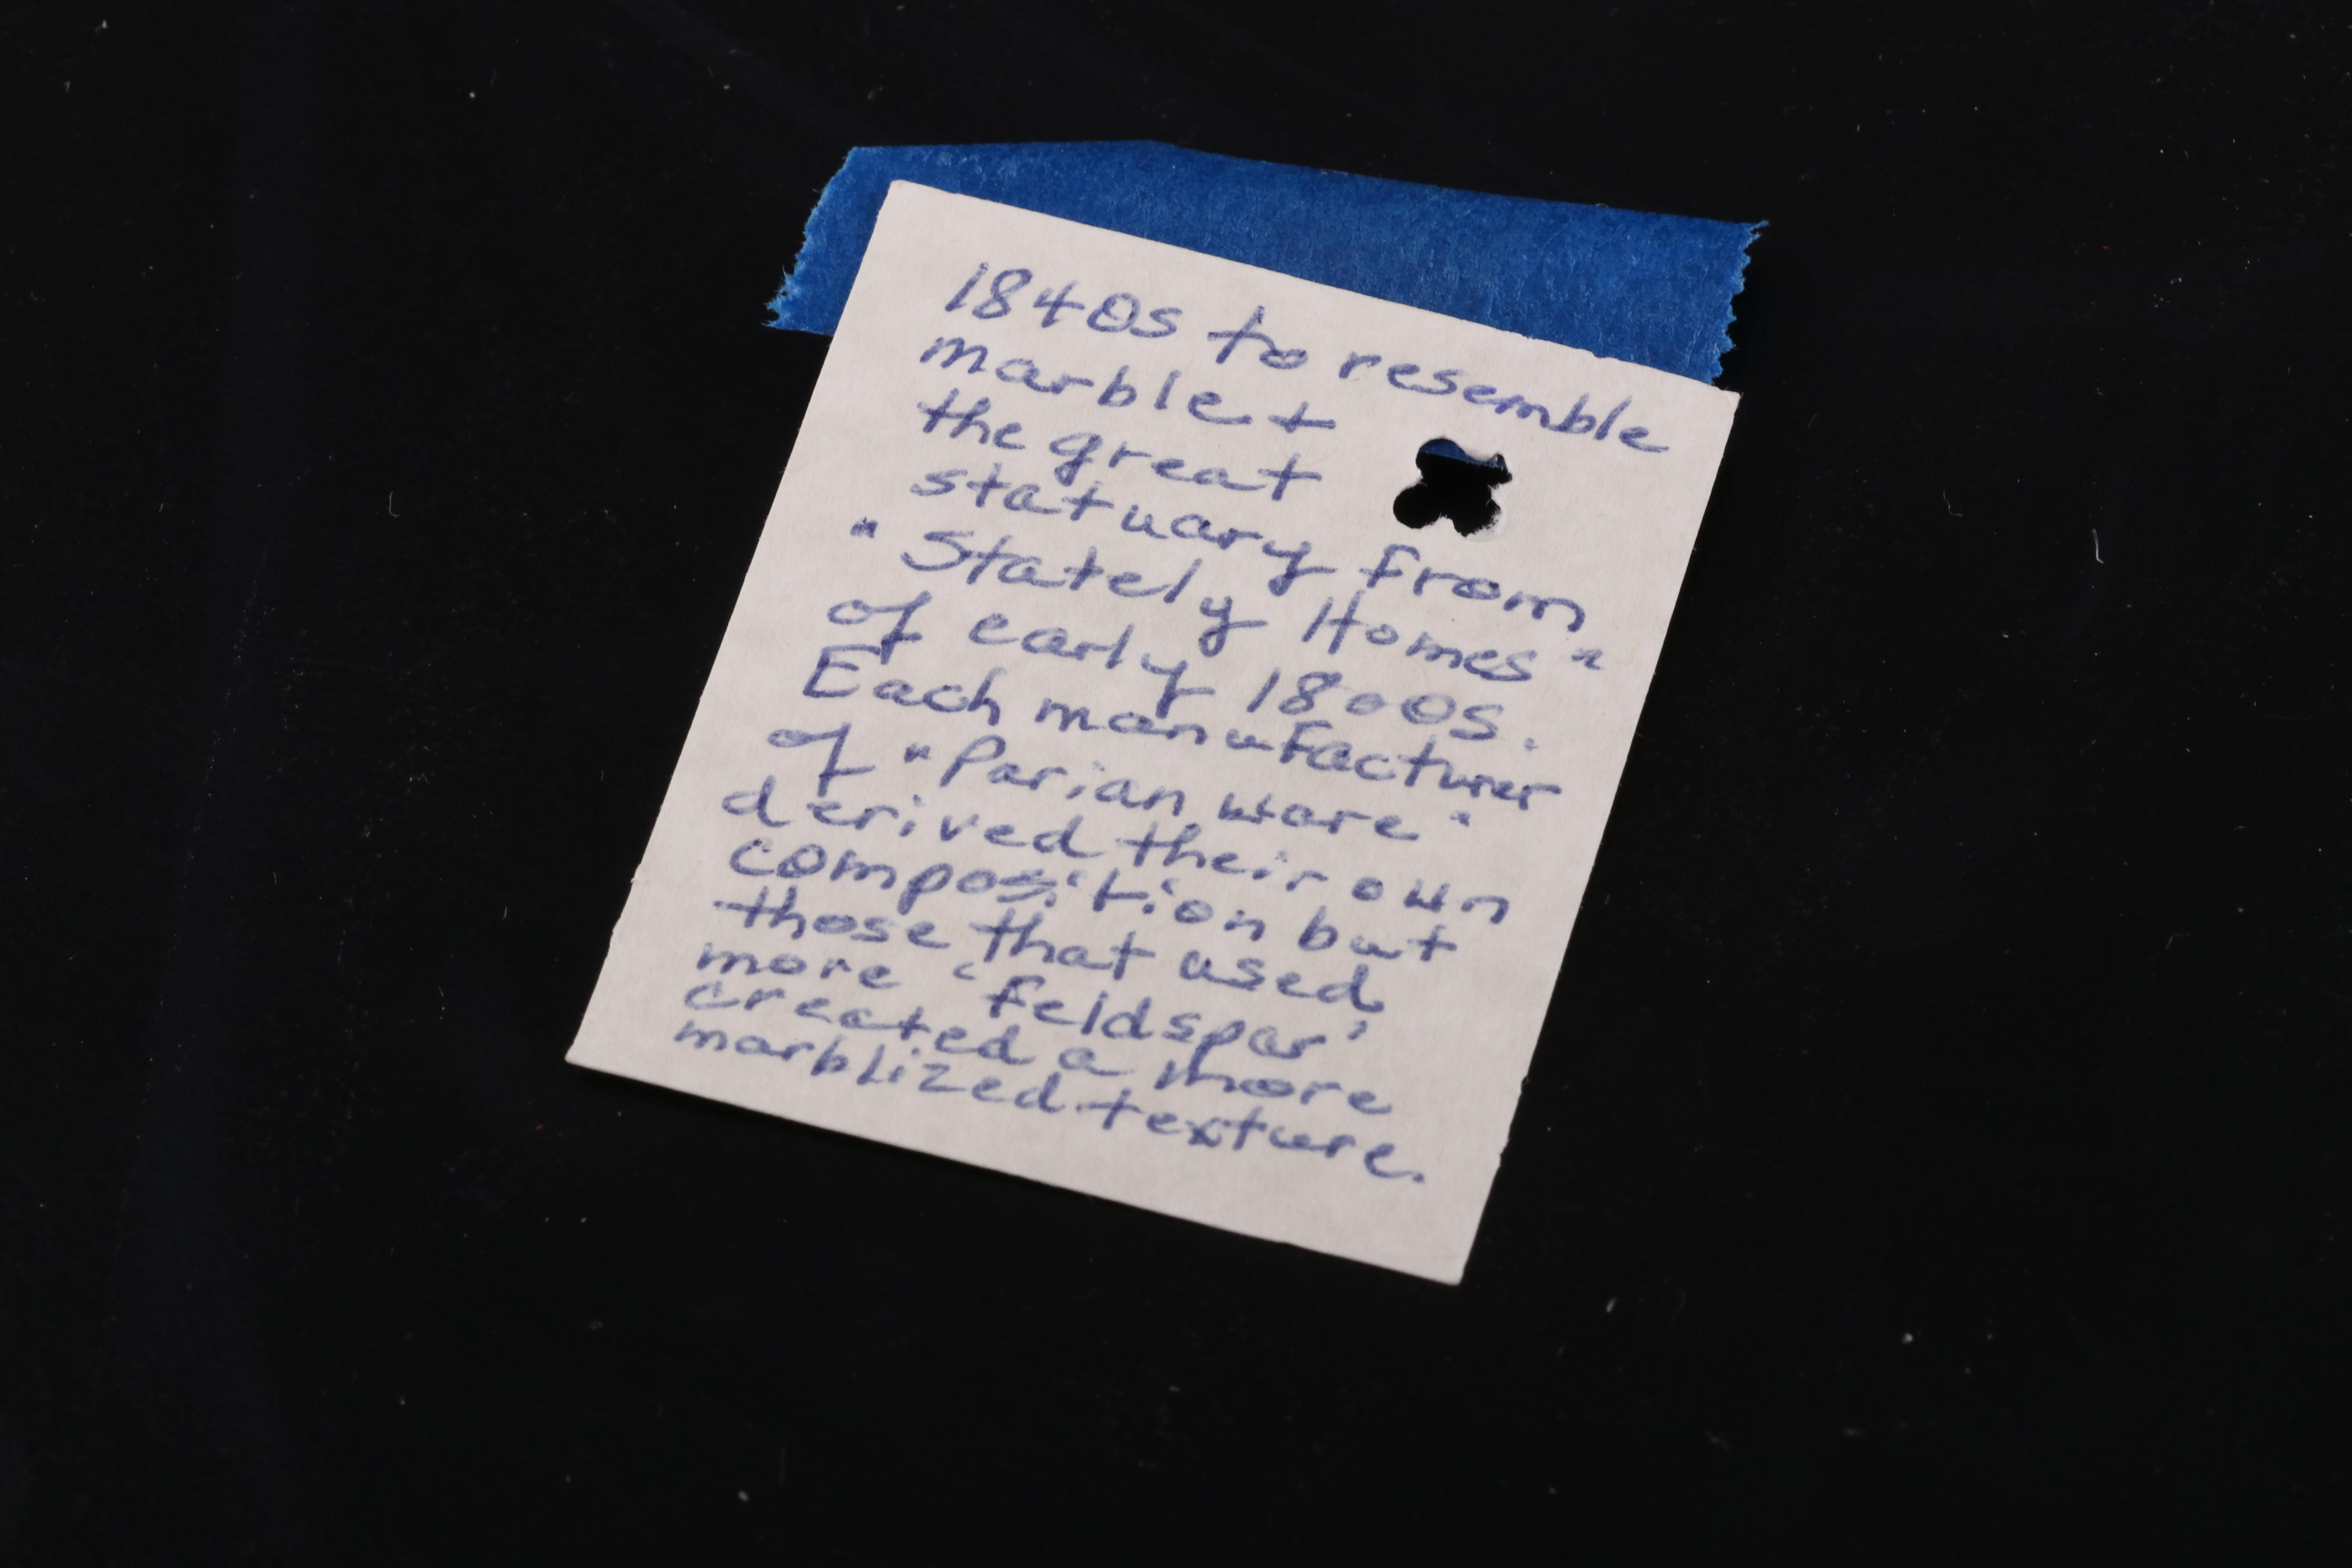 1840s to resemble
marble +
the great
statuary from
"Stately Homes"
of early 1800s.
Each manufacturer
of "Parian ware"
derived their own
composition but
those that used
more 'feldspar'
created a more
marblized texture.